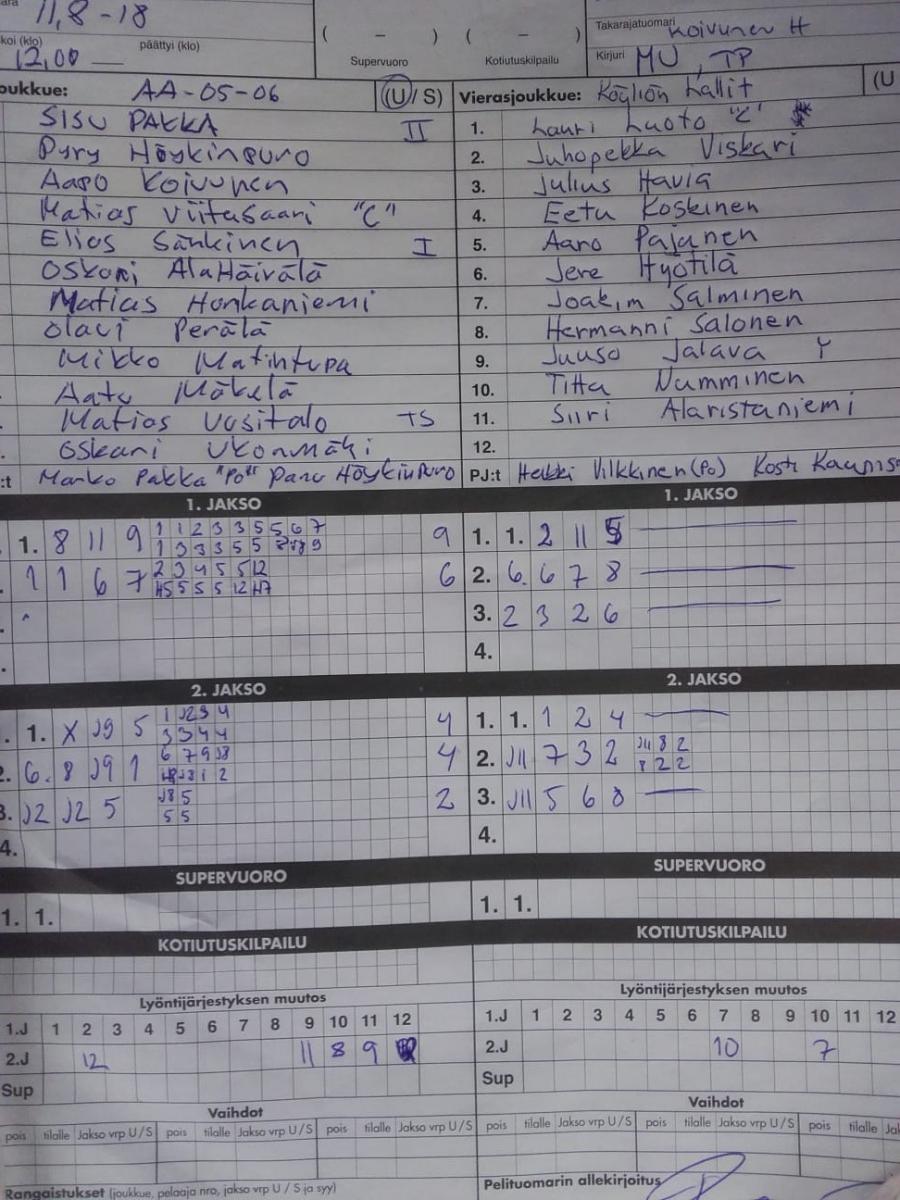 11,8-18
koi (klo) päättyi (klo)
12,00
( – ) ( – )
Supervuoro Kotiutuskilpailu
Takarajatuomari Koivunen H
Kirjuri MU, TP
oukkue: AA-05-06 (U/S)
SISU PAKKA II
Pyry Höykinpuro
Aapo Koivunen
Matias Viitasaari "C"
Elias Sänkinen I
Oskari AlaHäivälä
Matias Honkaniemi
Olavi Perälä
Mikko Matintupa
Aatu Mäkelä
Matias Uusitalo TS
Oskari Ukonmäki
:t Marko Pakka "PO" Panu Höykinpuro
Vierasjoukkue: Köyliön Lallit (U
1. Lauri Luoto "C"
2. Juhopekka Viskari
3. Julius Havia
4. Eetu Koskinen
5. Aaro Pajanen
6. Jere Hyötilä
7. Joakim Salminen
8. Hermanni Salonen
9. Juuso Jalava Y
10. Titta Numminen
11. Siiri Alaristaniemi
12.
PJ:t Heikki Vilkkinen (Po) Kosti Kaunis
1. JAKSO
1. 8 11 9 1 1 2 3 3 5 5 6 7 9
1 3 3 3 5 5
1 1 6 7 2 3 4 5 5 12 6
5 5 5 12
2. JAKSO
1. X J9 5 1 J2 3 4 4
3 3 4 4
2. 6. 8 J9 1 6 7 9 J8 4
1 2
3. J2 J2 5 J8 5 2
5 5
4.
SUPERVUORO
1. 1.
KOTIUTUSKILPAILU
Lyöntijärjestyksen muutos
1.J 1 2 3 4 5 6 7 8 9 10 11 12
2.J 12 11 8 9
Sup
Vaihdot
pois tilalle Jakso vrp U/S pois tilalle Jakso vrp U/S pois tilalle Jakso vrp U/S
Rangaistukset (joukkue, pelaaja nro, jakso vrp U/S ja syy)
1. JAKSO
1. 1. 2 11 5
2. 6. 6 7 8
3. 2 3 2 6
4.
2. JAKSO
1. 1. 1 2 4
2. J11 7 3 2 J11 8 2
8 2 2
3. J11 5 6 8
4.
SUPERVUORO
1. 1.
KOTIUTUSKILPAILU
Lyöntijärjestyksen muutos
1.J 1 2 3 4 5 6 7 8 9 10 11 12
2.J 10 7
Sup
Vaihdot
pois tilalle Jakso vrp U/S pois tilalle Jakso vrp U/S pois tilalle Ja
Pelituomarin allekirjoitus